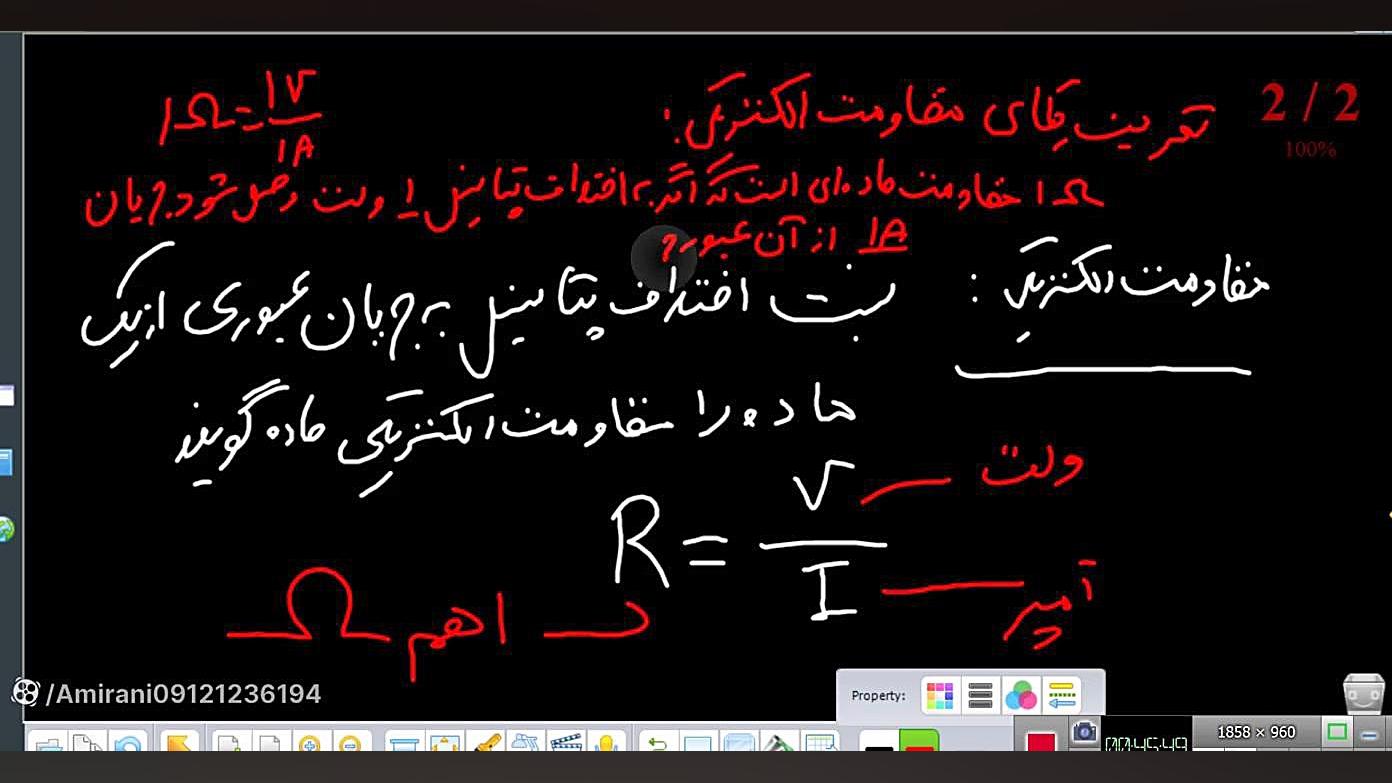 2 / 2
100%
تعریف یکای مقاومت الکتریکی:
1Ω = 1V / 1A
1Ω مقاومت ماده‌ای است که اگر به اختلاف پتانسیل 1 ولت وصل شود جریان
1A از آن عبور
مقاومت الکتریکی:
نسبت اختلاف پتانسیل به جریان عبوری از یک
ماده را مقاومت الکتریکی ماده گویند
R = V / I
ولت
آمپر
اهم Ω
/Amirani09121236194
Property:
1858 × 960